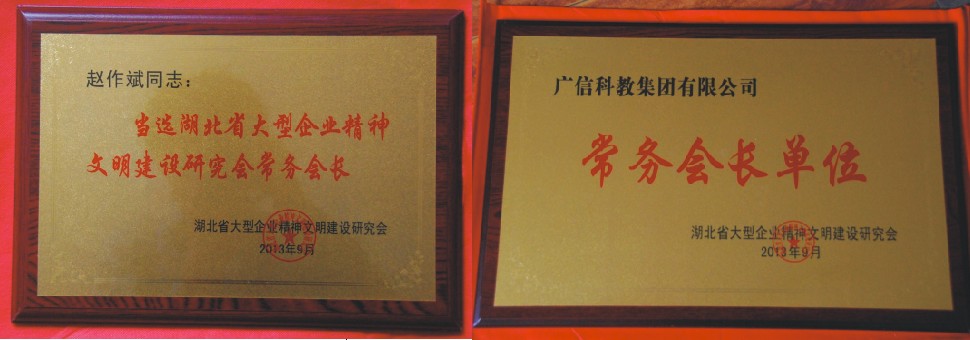 赵作斌同志：
当选湖北省大型企业精神
文明建设研究会常务会长
湖北省大型企业精神文明建设研究会
2013年9月
广信科教集团有限公司
常务会长单位
湖北省大型企业精神文明建设研究会
2013年9月